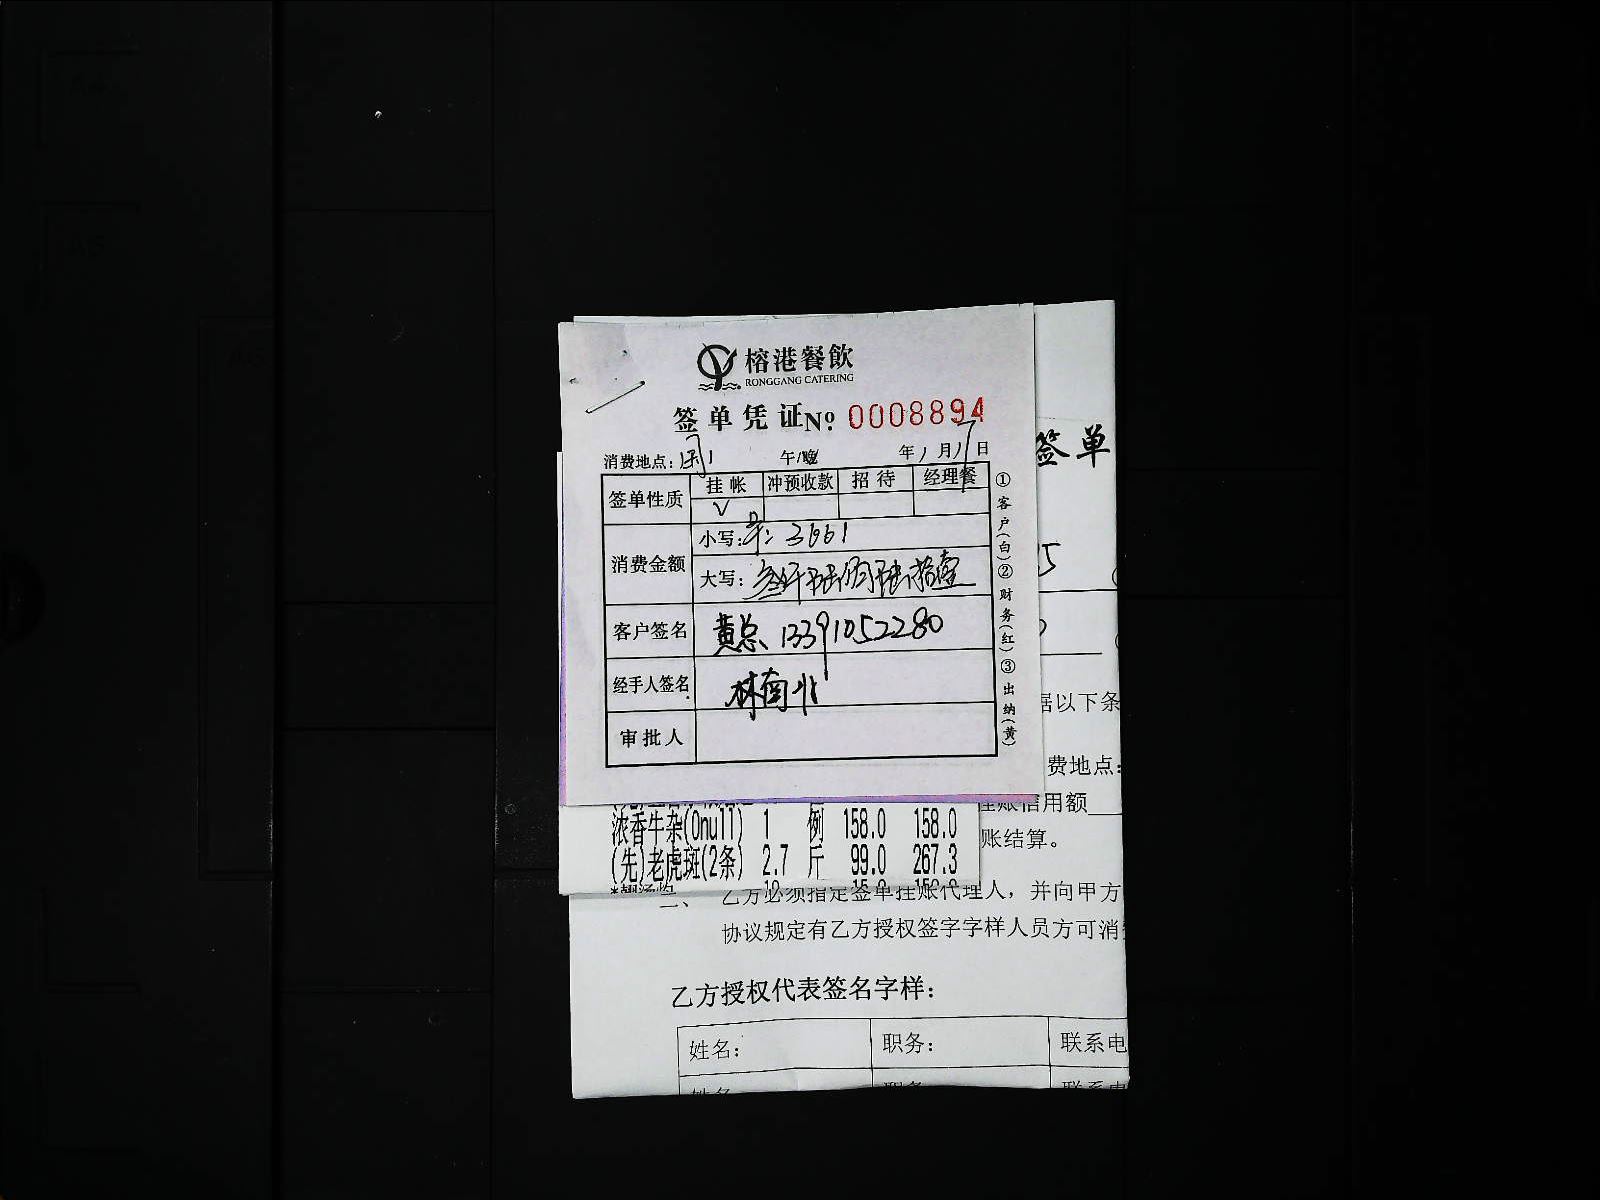 榕港餐飲
RONGGANG CATERING
签单凭证 No: 0008894
消费地点: 午/晚 年1月17日
签单性质 挂帐 冲预收款 招待 经理餐
V
消费金额 小写: 3661
大写: 叁仟陆佰陆拾壹
客户签名 黄总 13391052280
经手人签名 林南北
审批人
①客户(白)②财务(红)③出纳(黄)
签单
据以下条
费地点:
挂账信用额
账结算。
浓香牛杂(0null) 1 例 158.0 158.0
(先)老虎斑(2条) 2.7 斤 99.0 267.3
二、 乙方必须指定签单挂账代理人，并向甲方
协议规定有乙方授权签字字样人员方可消
乙方授权代表签名字样:
姓名: 职务: 联系电
姓名 职务 联系电